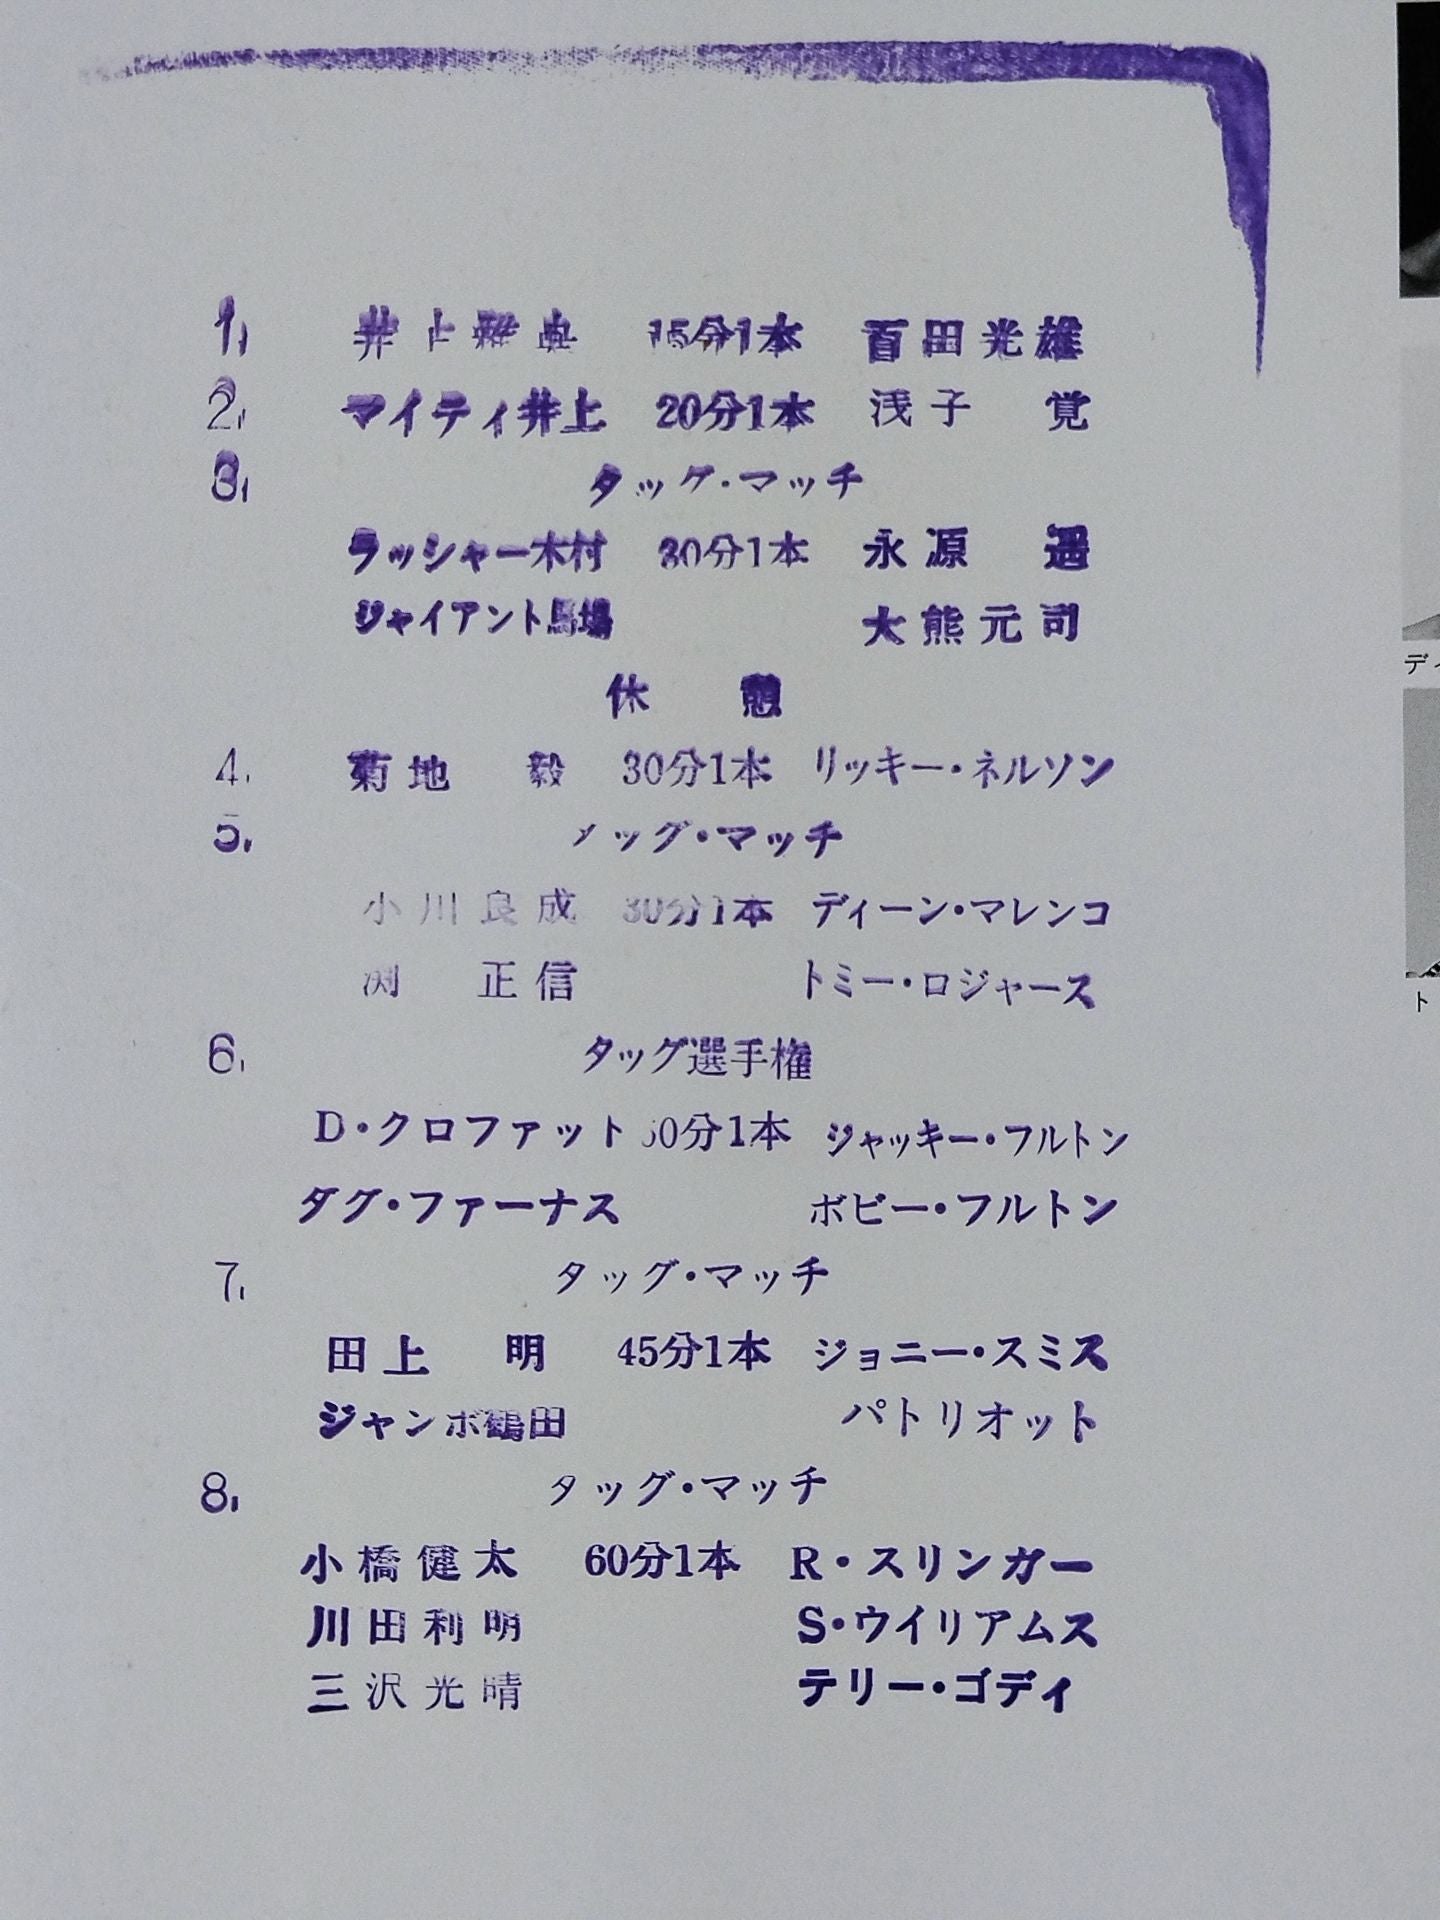 1, 井上雅央 15分1本 百田光雄
2, マイティ井上 20分1本 浅子 覚
3, タッグ・マッチ
ラッシャー木村 30分1本 永源 遥
ジャイアント馬場 大熊元司
休 憩
4, 菊地 毅 30分1本 リッキー・ネルソン
5, タッグ・マッチ
小川良成 30分1本 ディーン・マレンコ
渕 正信 トミー・ロジャース
6, タッグ選手権
D・クロファット 60分1本 ジャッキー・フルトン
ダグ・ファーナス ボビー・フルトン
7, タッグ・マッチ
田上 明 45分1本 ジョニー・スミス
ジャンボ鶴田 パトリオット
8, タッグ・マッチ
小橋健太 60分1本 R・スリンガー
川田利明 S・ウイリアムス
三沢光晴 テリー・ゴディ
ディ
ト